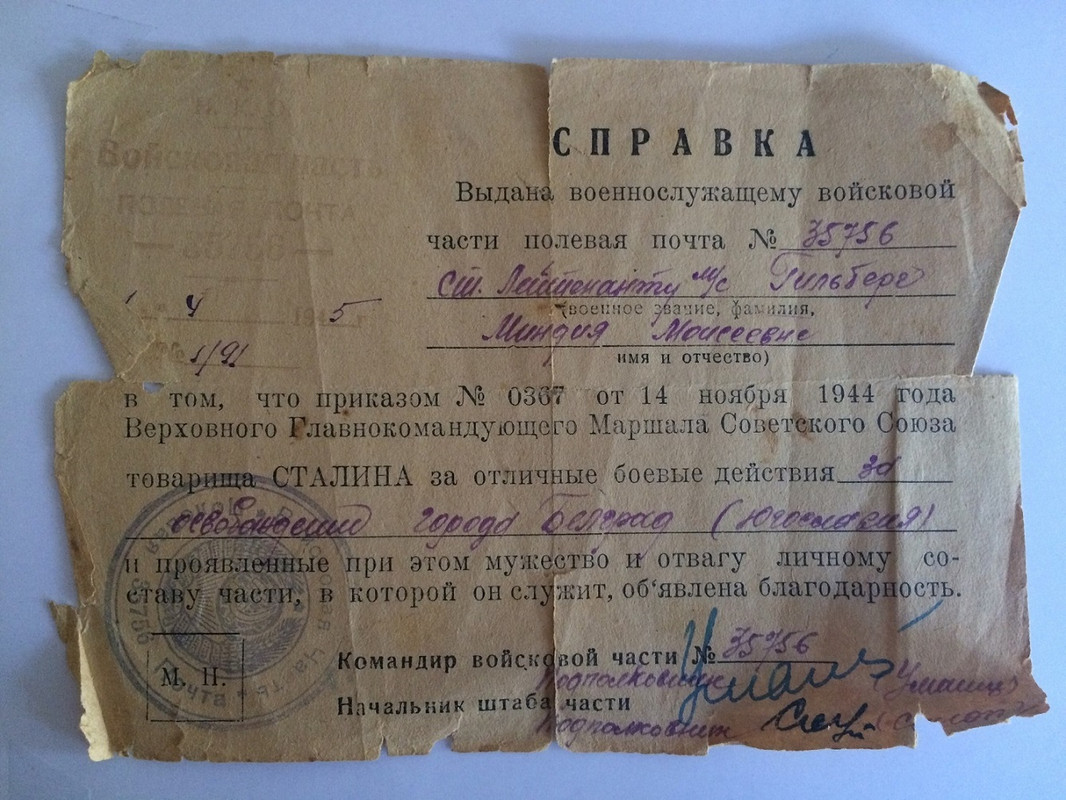 Войсковая часть
СПРАВКА
Выдана военнослужащему войсковой
части полевая почта № 35756
ст. Лейтенанту м/с Гильберг
(военное звание, фамилия,
4 1945 г.
Миндия Моисеевне
№ 1/91
имя и отчество)
в том, что приказом № 0367 от 14 ноября 1944 года
Верховного Главнокомандующего Маршала Советского Союза
товарища СТАЛИНА за отличные боевые действия за
освобождение города Белград (Югославия)
и проявленные при этом мужество и отвагу личному со-
ставу части, в которой он служит, об‘явлена благодарность.
Командир войсковой части № 35756
М. П.
Подполковник
Начальник штаба части
Подполковник